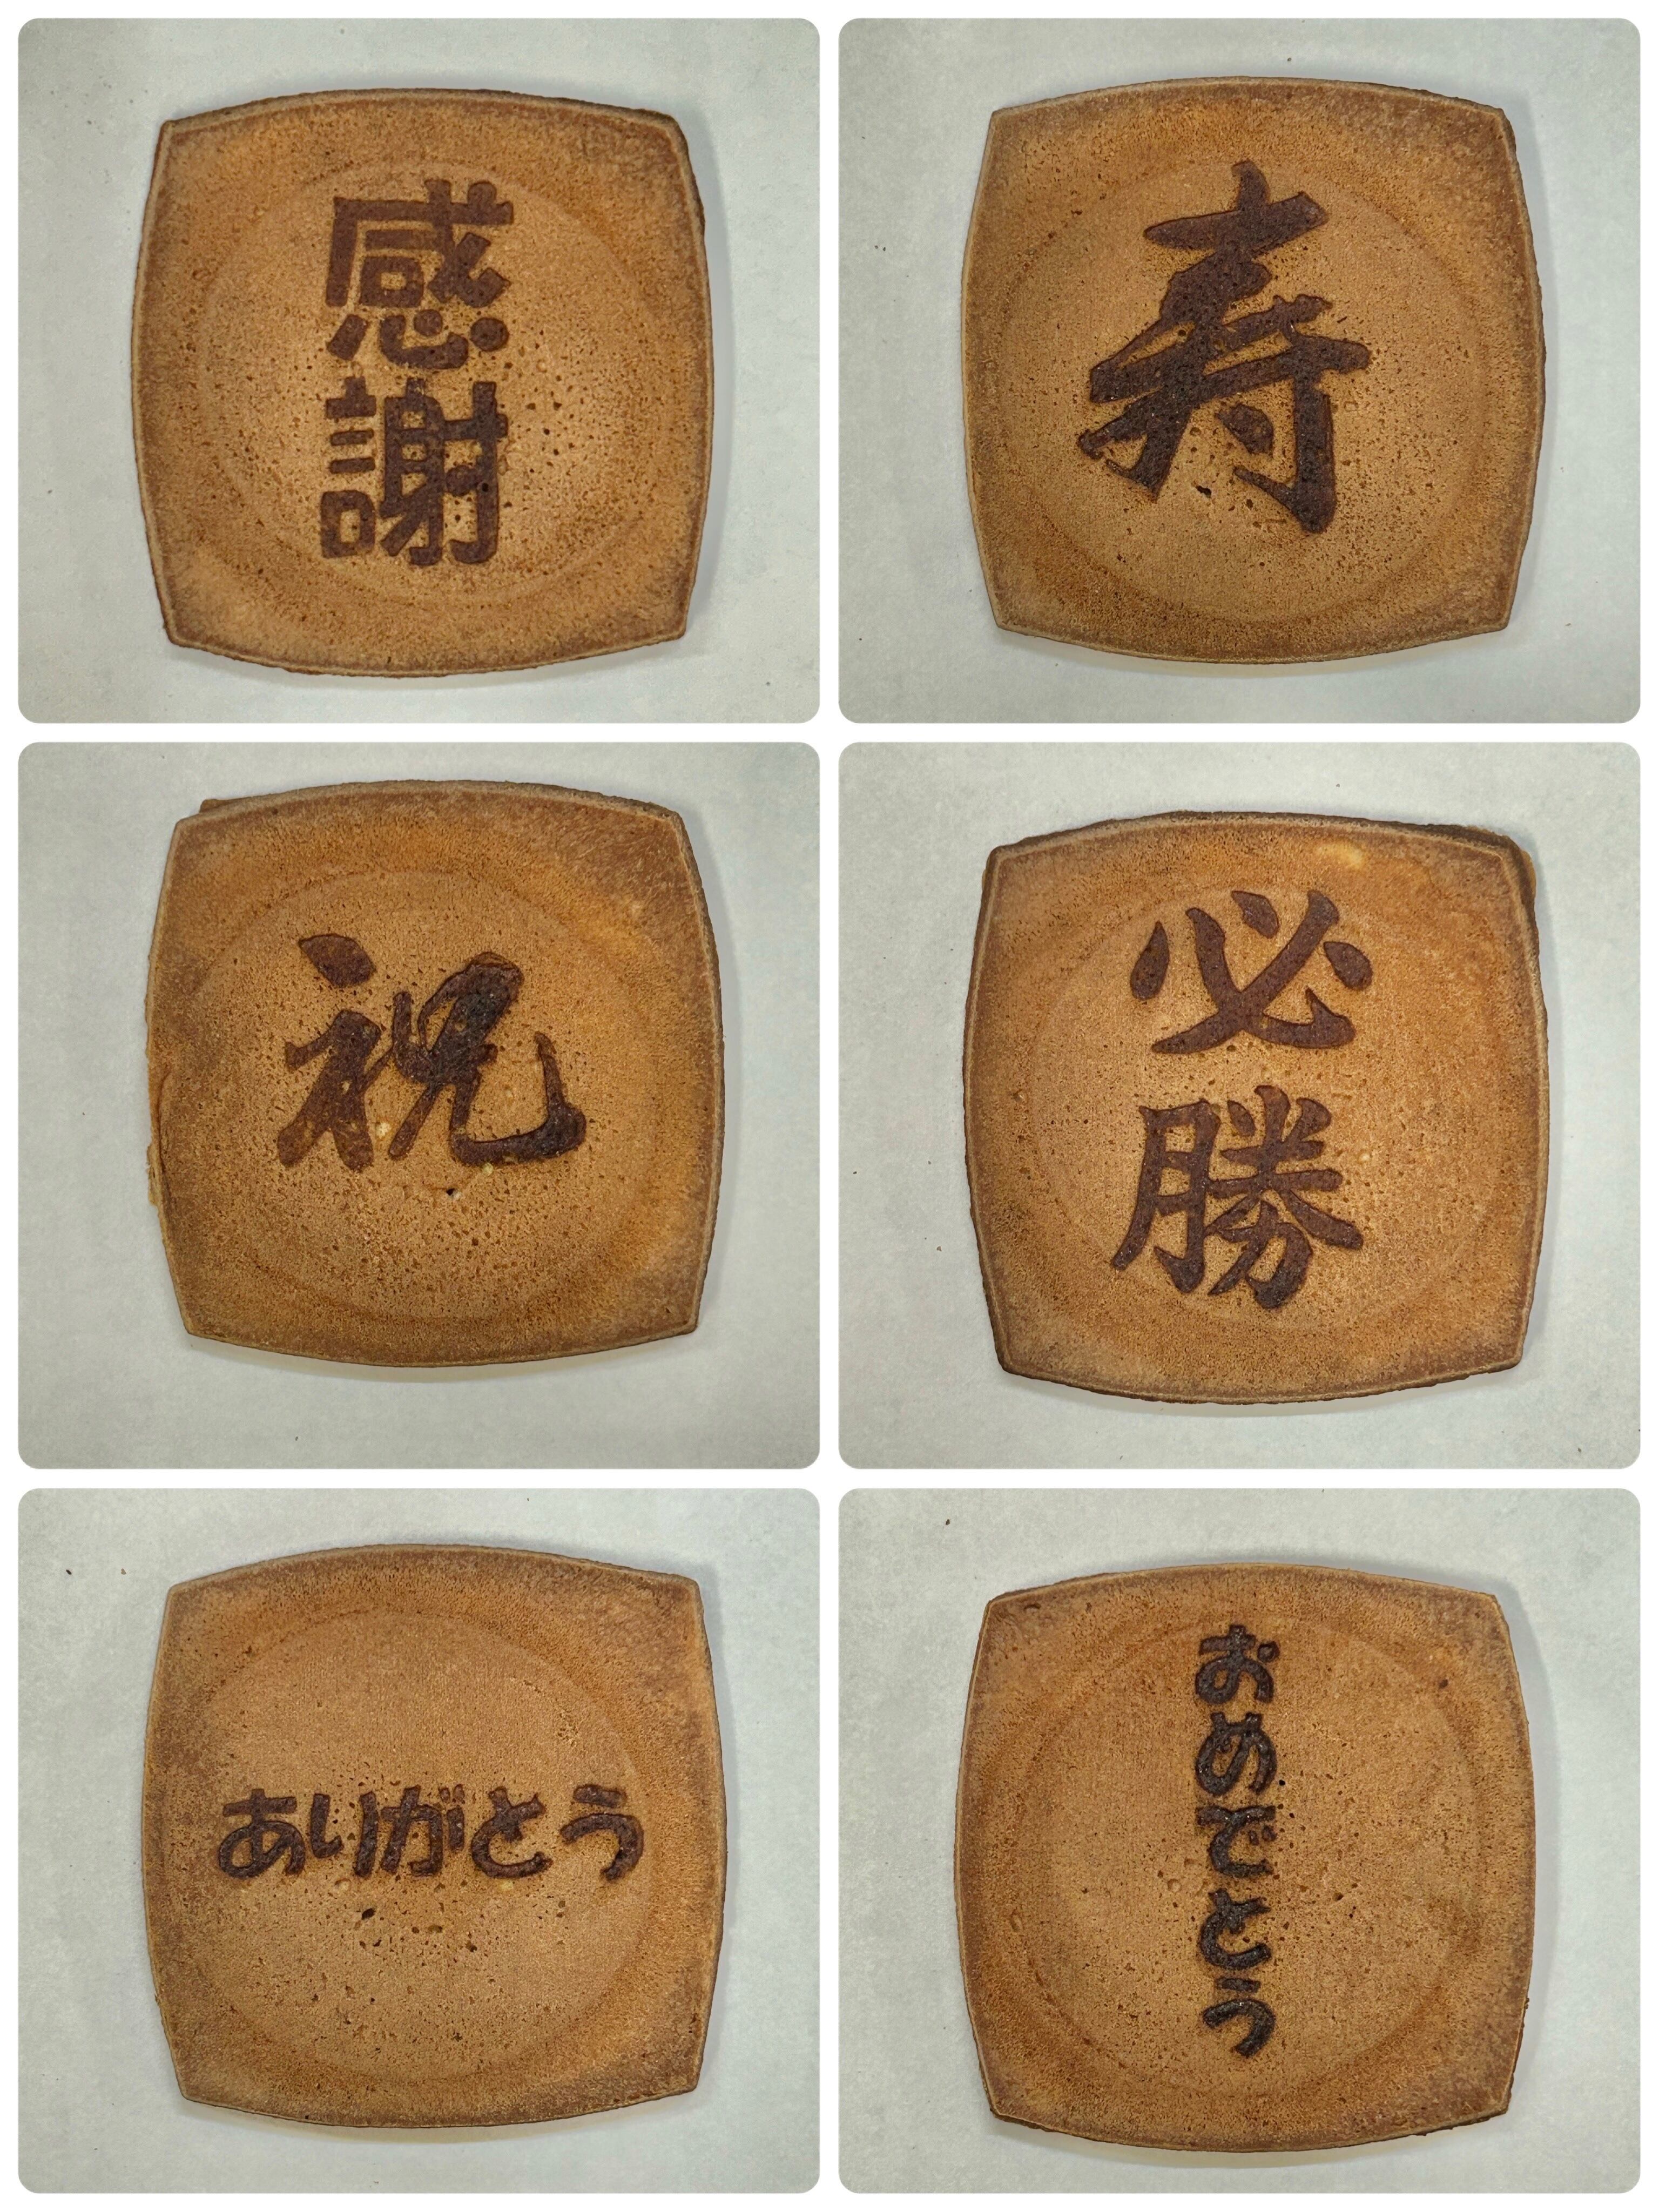 感謝
寿
祝
必勝
ありがとう
おめでとう